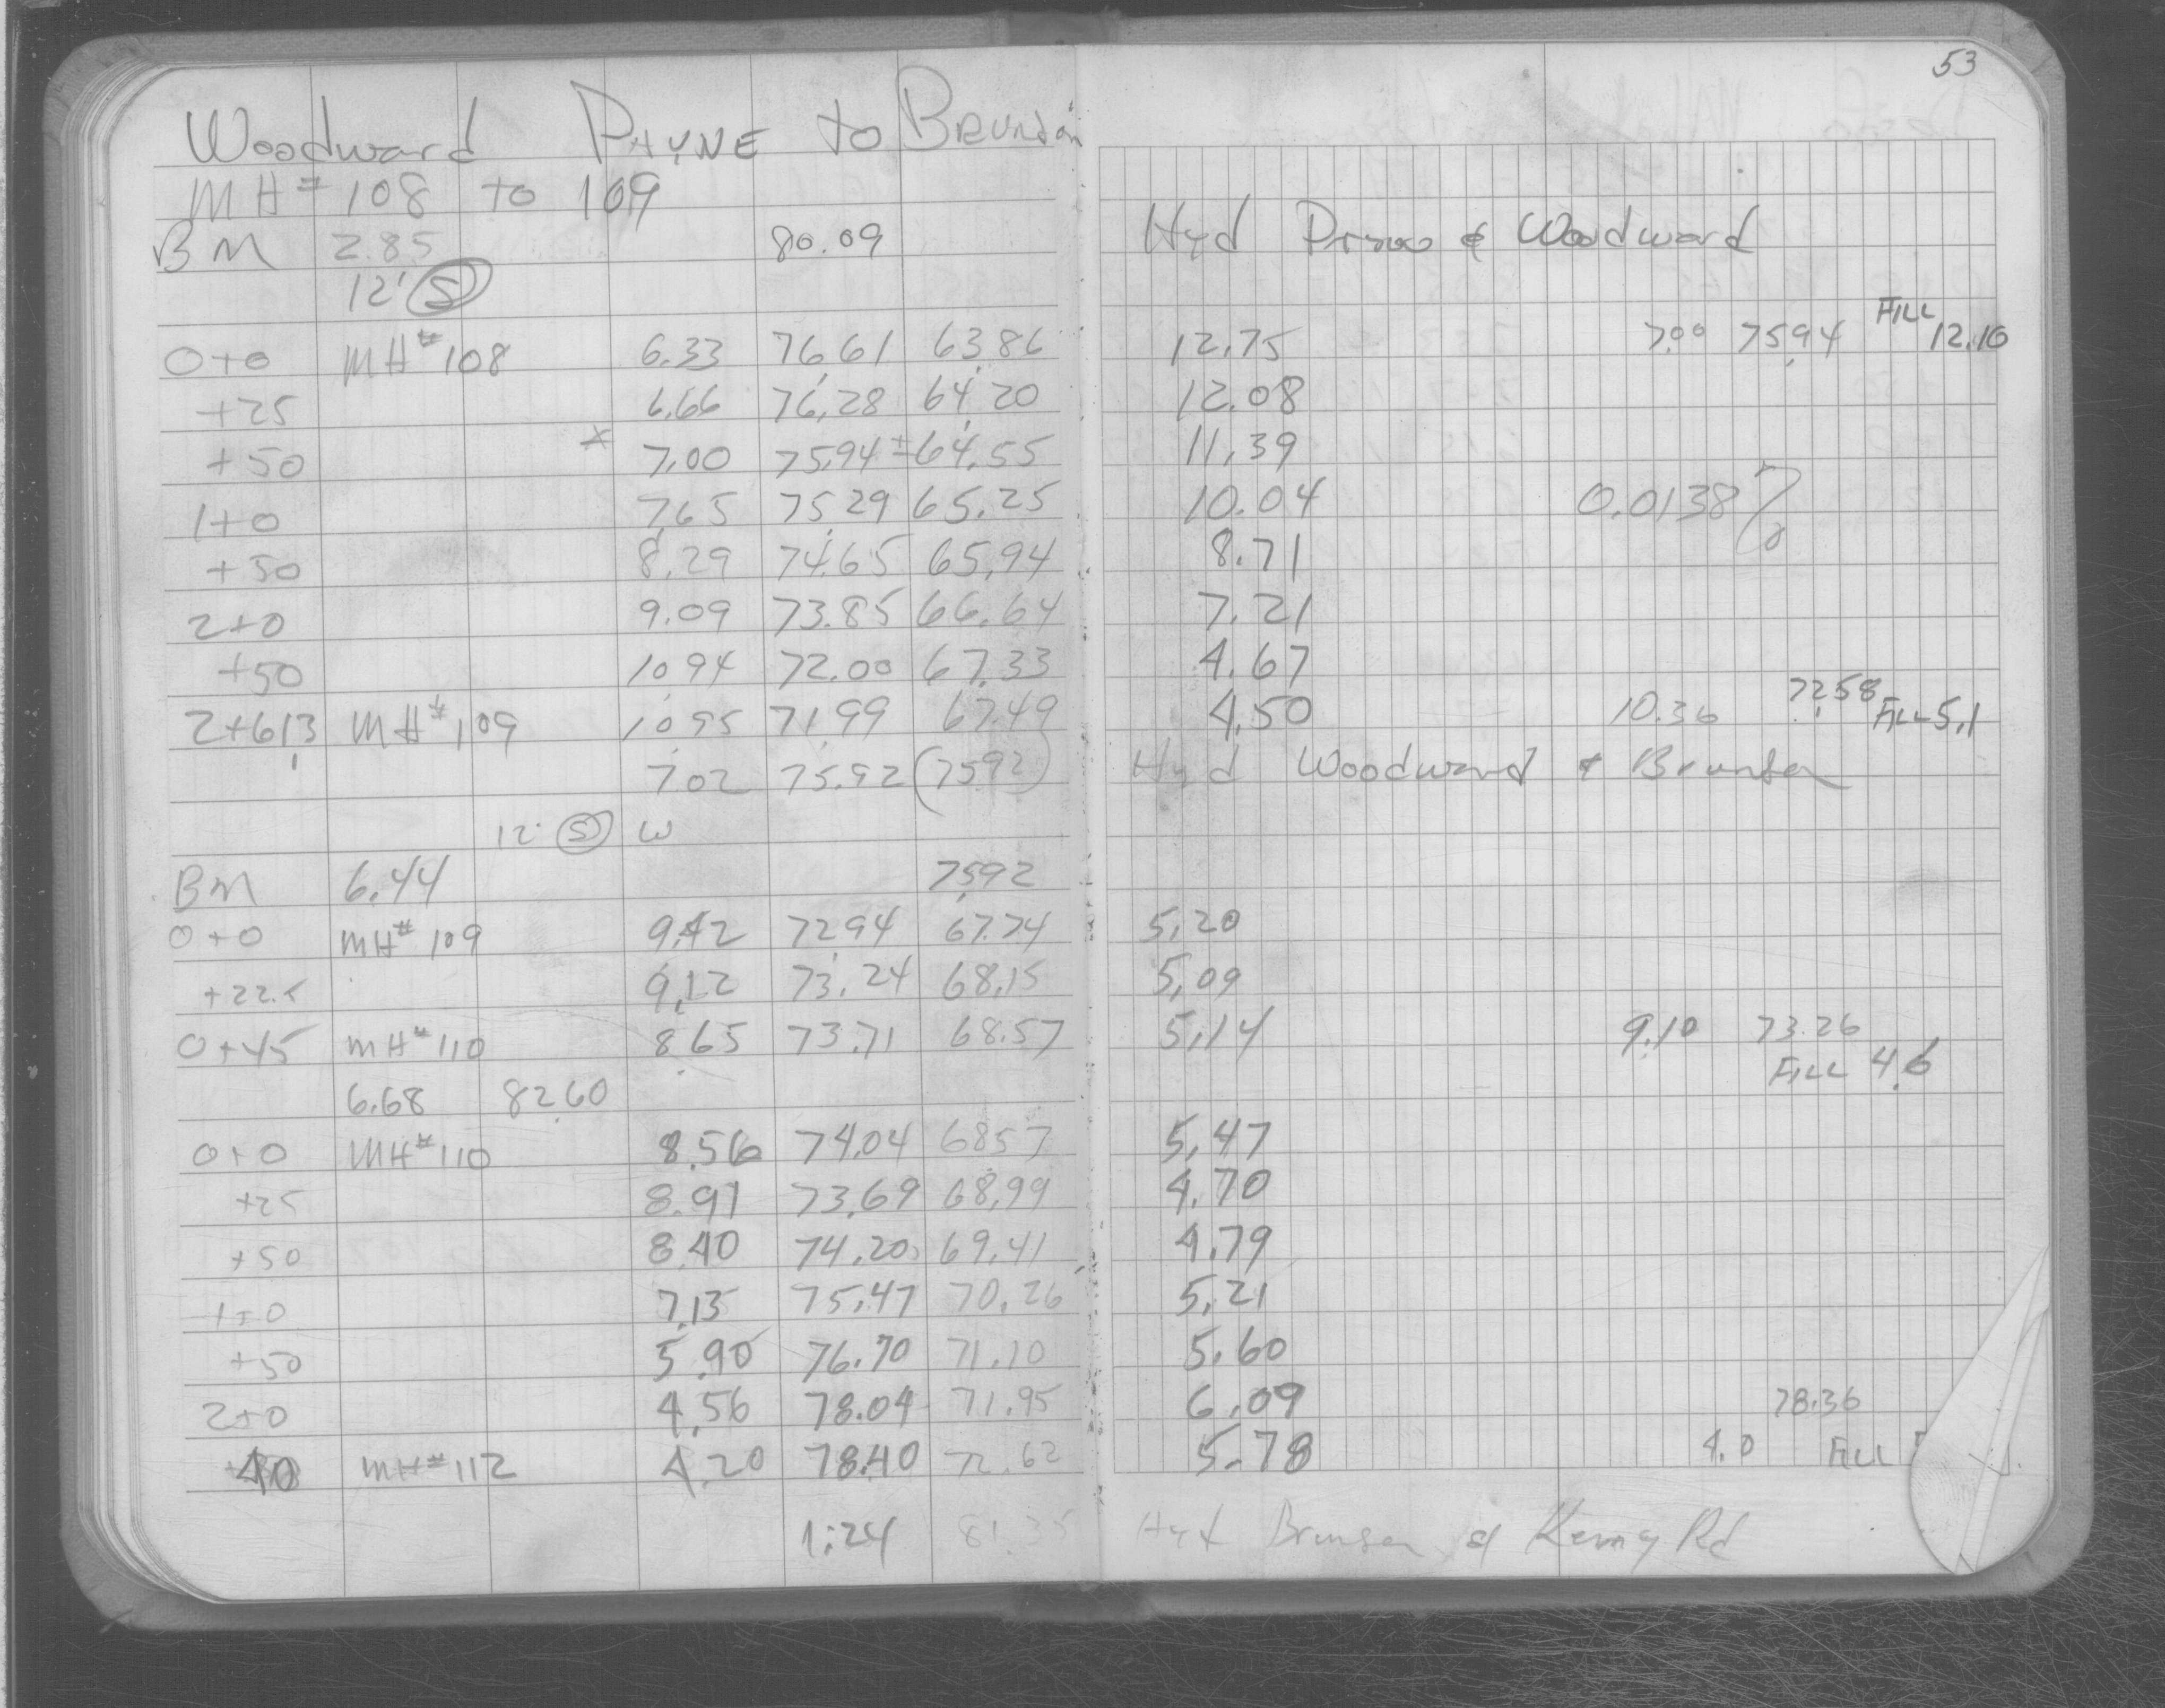 53
Woodward PAYNE to Brunson
MH# 108 to 109
BM 2.85 80.09 Hyd & Woodward
12' S
0+0 MH#108 6.33 76.61 63.86 12.75 7.00 75.94 FILL 12.10
+25 6.66 76.28 64.20 12.08
+50 * 7.00 75.94 ± 64.55 11.39
1+0 7.65 75.29 65.25 10.04 0.0138 %
+50 8.29 74.65 65.94 8.71
2+0 9.09 73.85 66.64 7.21
+50 10.94 72.00 67.33 4.67
2+61.3 MH#109 10.95 71.99 67.49 4.50 10.36 72.58 FILL 5.1
7.02 75.92 (75.92) Hyd Woodward & Brunson
12' S W
BM 6.44 75.92
0+0 MH# 109 9.42 72.94 67.74 5.20
+22.5 9.12 73.24 68.15 5.09
0+45 MH#110 8.65 73.71 68.57 5.14 9.10 73.26
FILL 4.6
6.68 82.60
0+0 MH#110 8.56 74.04 68.57 5.47
+25 8.91 73.69 68.99 4.70
+50 8.40 74.20 69.41 4.79
1+0 7.13 75.47 70.26 5.21
+50 5.90 76.70 71.10 5.60
2+0 4.56 78.04 71.95 6.09 78.36
40 MH#112 4.20 78.40 72.62 5.78 4.0 FILL
1.24 81.35 Hyd Brunson & Kenny Rd